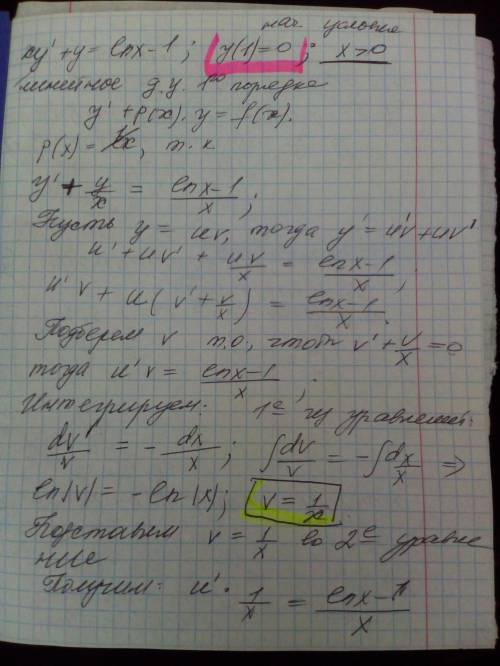 нач. условие
xy' + y = ln x - 1 ; y(1) = 0 ; x > 0
линейное д.у. 1го порядка
y' + p(x) · y = f(x).
p(x) = 1/x, т.к
y' + y/x = (ln x - 1)/x ;
Пусть y = uv, тогда y' = u'v + uv'
u' + uv' + uv/x = (ln x - 1)/x ,
u'v + u(v' + v/x) = (ln x - 1)/x .
Подберем v т.о., чтобы v' + v/x = 0
тогда u'v = (ln x - 1)/x ;
Интегрируем: 1е из уравнений:
dv/v = - dx/x ; ∫ dv/v = - ∫ dx/x ⇒
ln|v| = - ln|x| ; v = 1/x
Подставим v = 1/x во 2е уравне
ние
Получим: u' · 1/x = (ln x - 1)/x